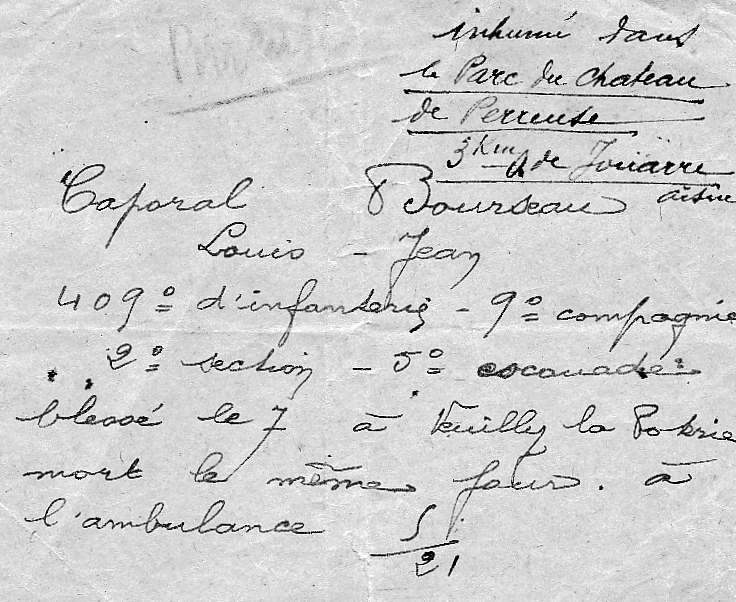 inhumé dans
le Parc du chateau
de Perreuse
3 Km de Jouarre
aisne
Caporal Bourseau
Louis - Jean
409e d'infanterie - 9e compagnie
2e section - 5e escouade
blessé le 7 à Veuilly la Potrie
mort le même jour. à
l'ambulance 5/21